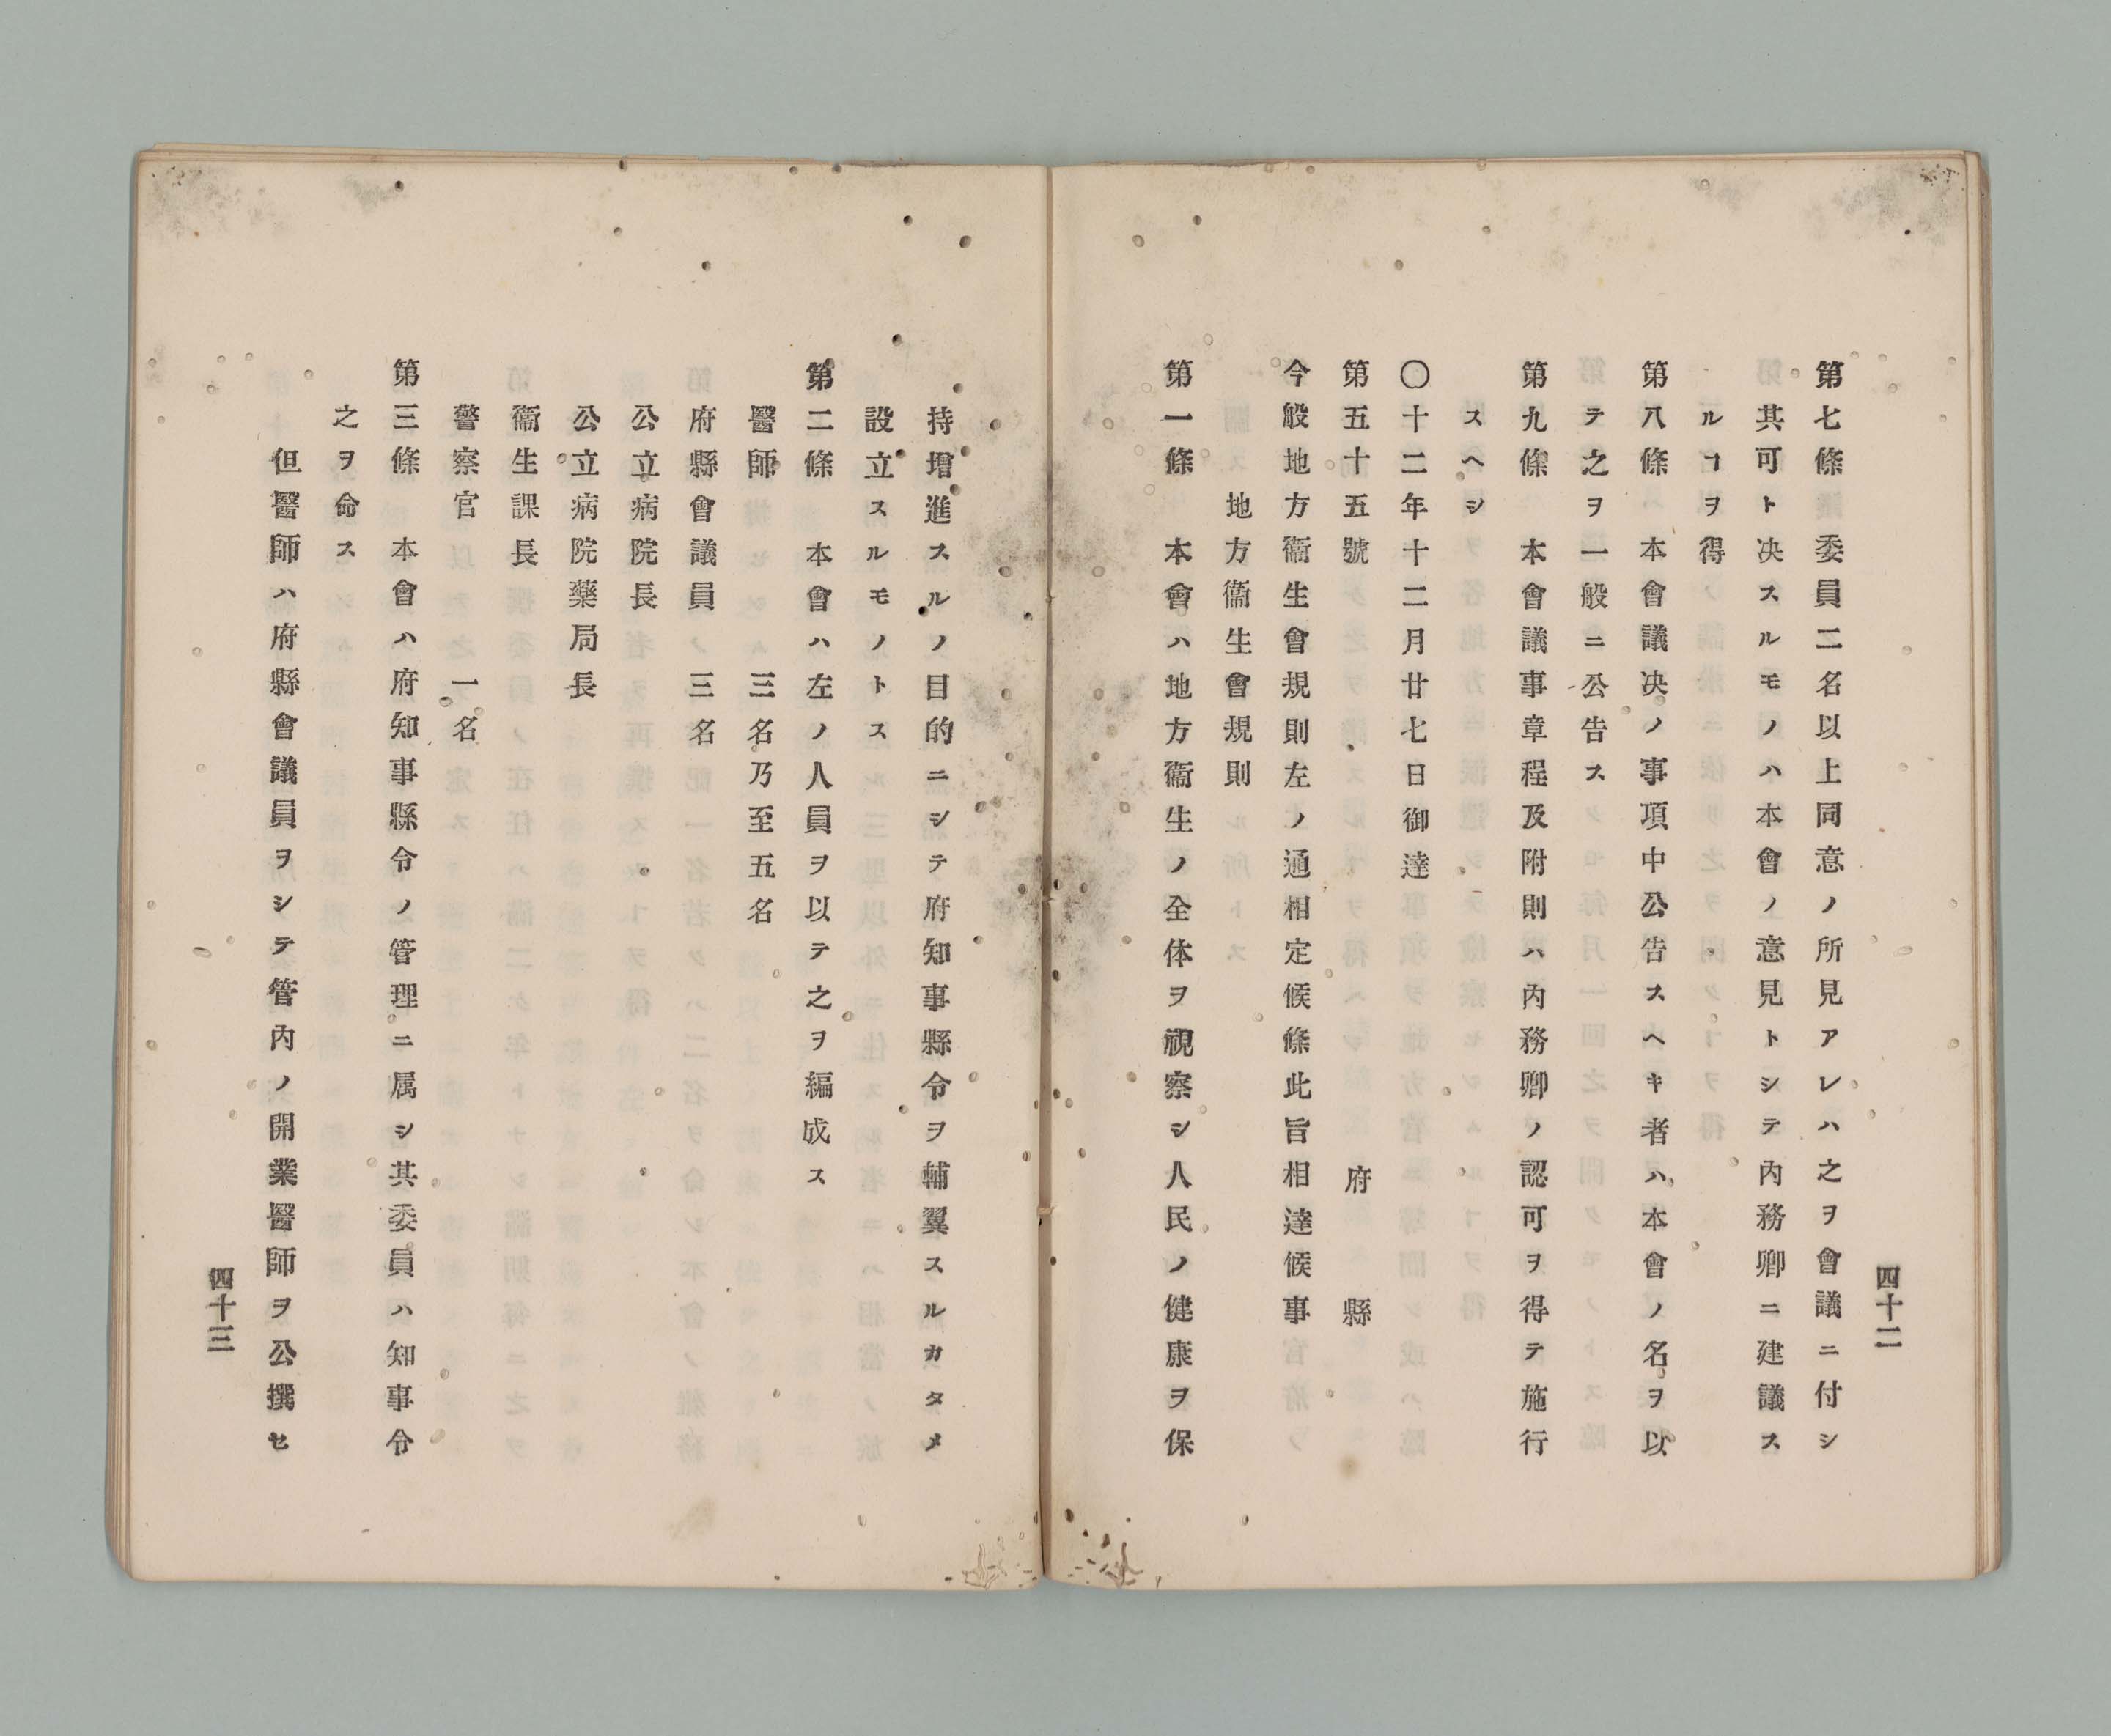 第七條　委員二名以上同意ノ所見アレハ之ヲ會議ニ付シ
其可ト決スルモノハ本會ノ意見トシテ內務卿ニ建議ス
ルヿヲ得
第八條　本會議決ノ事項中公告スヘキ者ハ本會ノ名ヲ以
テ之ヲ一般ニ公告ス
第九條　本會議事章程及附則ハ內務卿ノ認可ヲ得テ施行
スヘシ
〇十二年十二月廿七日御達
第五十五號　府　縣
今般地方衞生會規則左ノ通相定候條此旨相達候事
地方衞生會規則
第一條　本會ハ地方衞生ノ全体ヲ視察シ人民ノ健康ヲ保
四十二
持增進スルノ目的ニシテ府知事縣令ヲ輔翼スルカタメ
設立スルモノトス
第二條　本會ハ左ノ人員ヲ以テ之ヲ編成ス
醫師　三名乃至五名
府縣會議員　三名
公立病院長
公立病院藥局長
衞生課長
警察官　一名
第三條　本會ハ府知事縣令ノ管理ニ属シ其委員ハ知事令
之ヲ命ス
但醫師ハ府縣會議員ヲシテ管內ノ開業醫師ヲ公撰セ
四十三